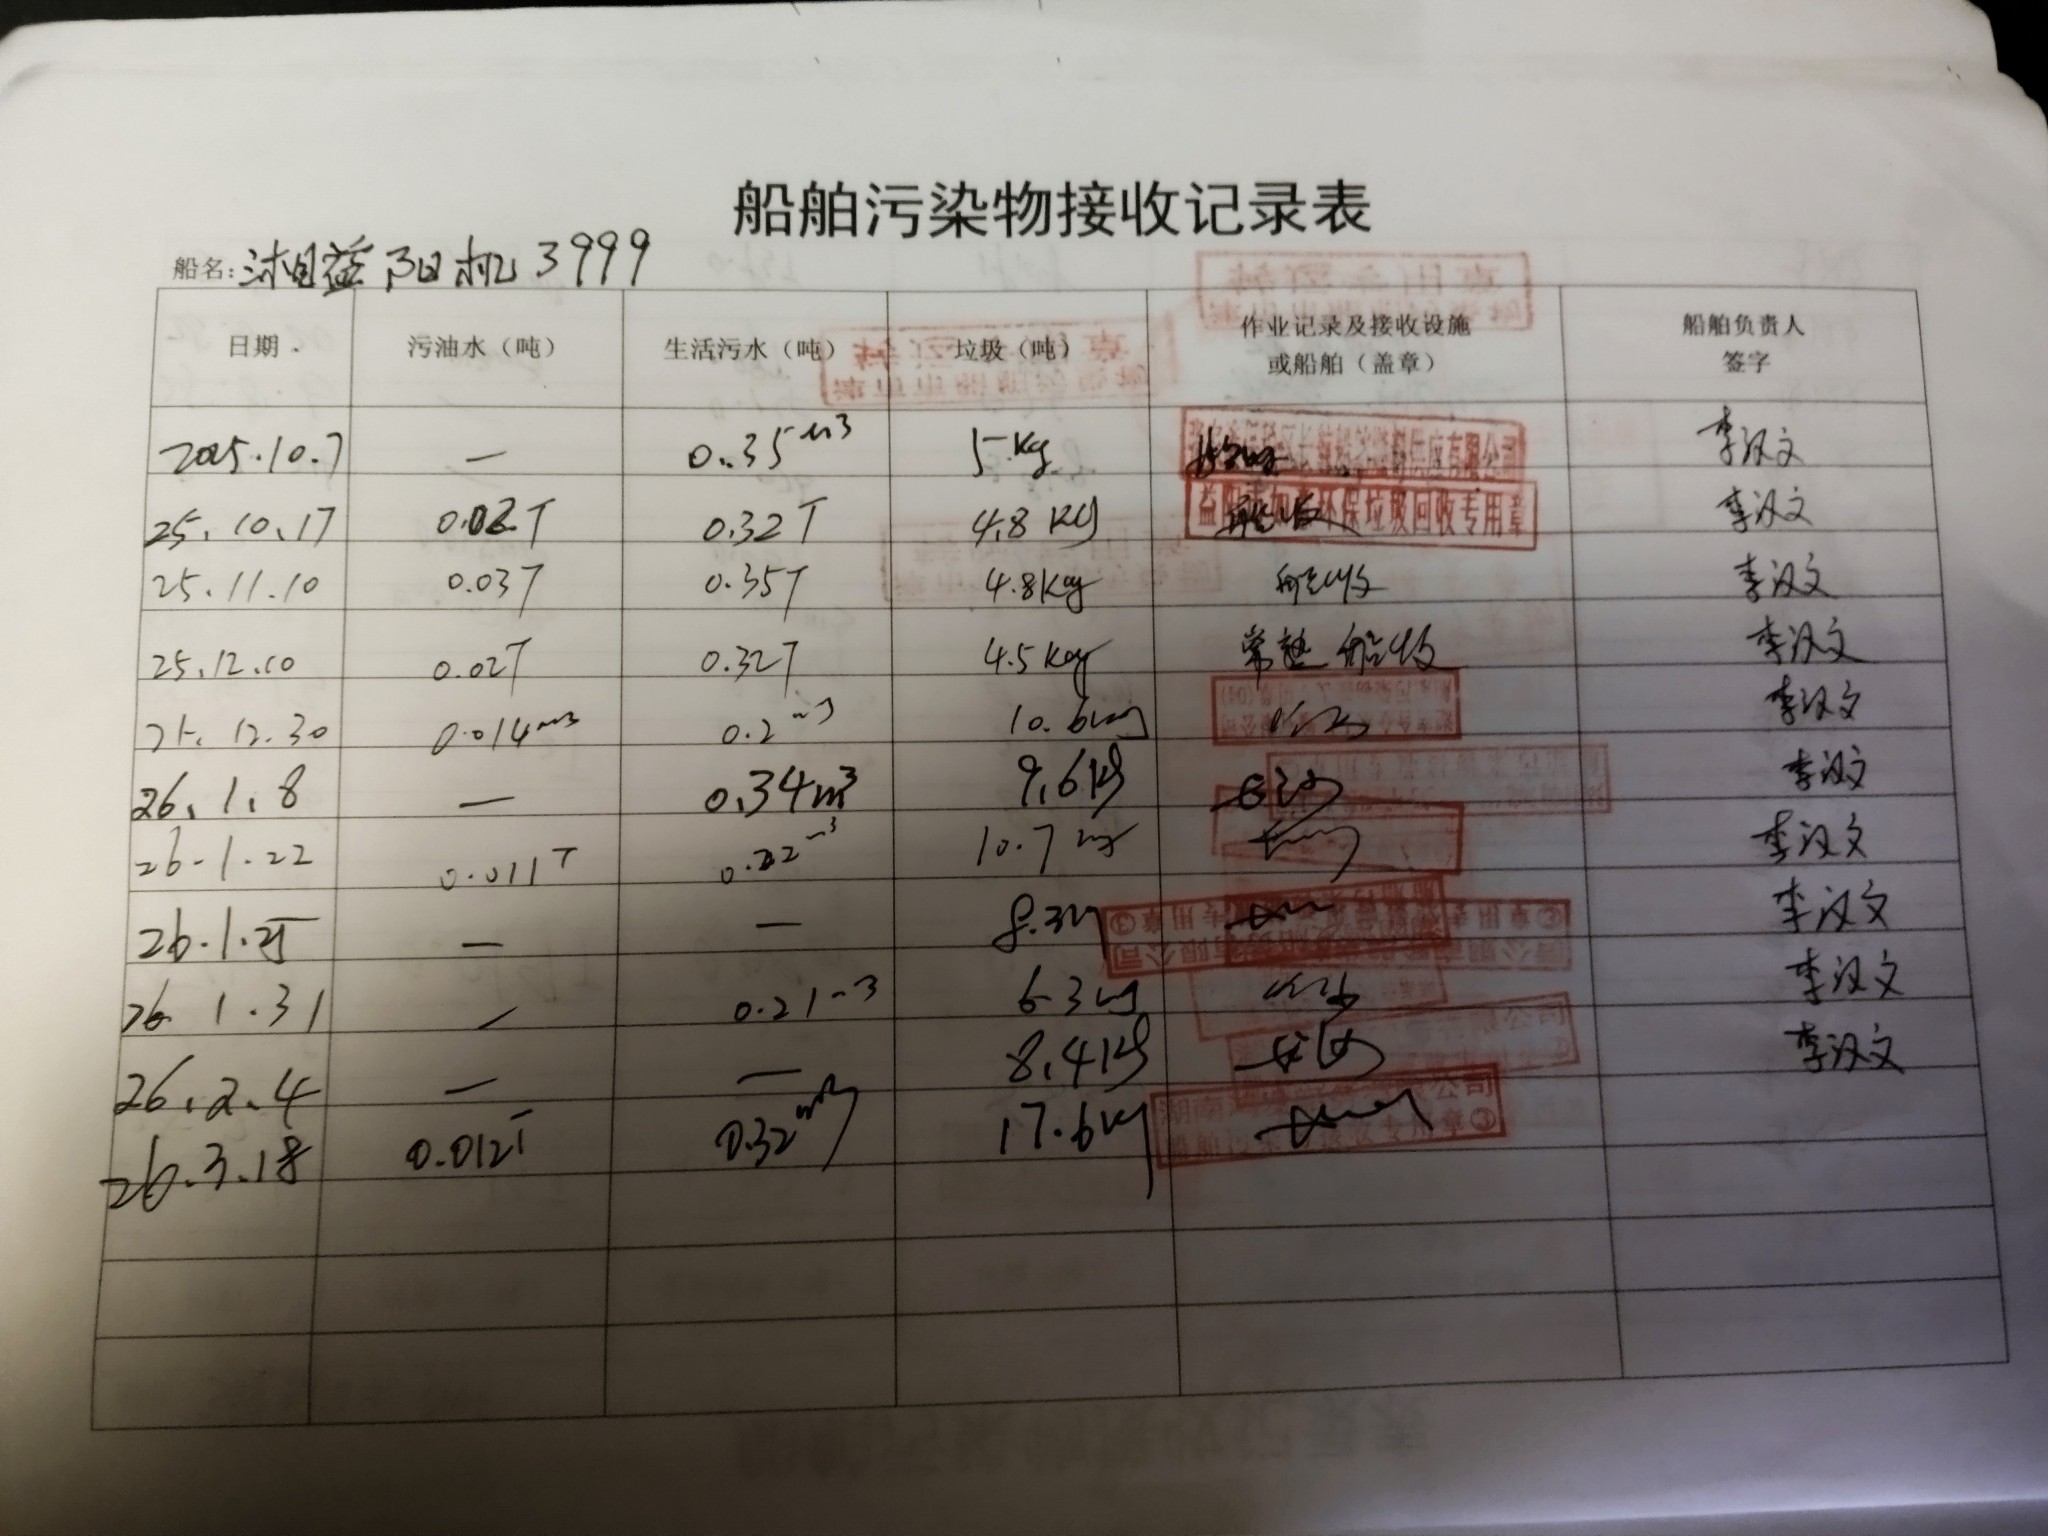 船舶污染物接收记录表
船名: 湘益阳机3999
日期 污油水（吨） 生活污水（吨） 垃圾（吨） 作业记录及接收设施或船舶（盖章） 船舶负责人签字
2025.10.7 — 0.35m3 5kg 李汉文
25.10.17 0.02T 0.32T 4.8Kg 船收 益阳 环保垃圾回收专用章 李汉文
25.11.10 0.03T 0.35T 4.8Kg 船收 李汉文
25.12.10 0.02T 0.32T 4.5Kg 常熟 船收 李汉文
25.12.30 0.014m3 0.2m3 10.6kg 李汉文
26.1.8 — 0.34m3 9.6kg 李汉文
26.1.22 0.011T 0.22m3 10.7kg 李汉文
26.1.25 — — 8.3kg 李汉文
26.1.31 — 0.21m3 6.3kg 李汉文
26.2.4 — — 8.4kg 李汉文
26.3.18 0.012T 0.32m3 17.6kg